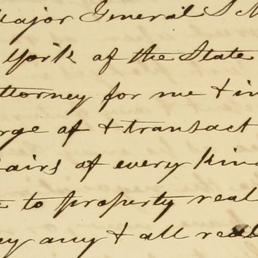 Major General S
York of the State
ttorney for me & in
rge of & transact
airs of every kind
to property real
ey any & all real